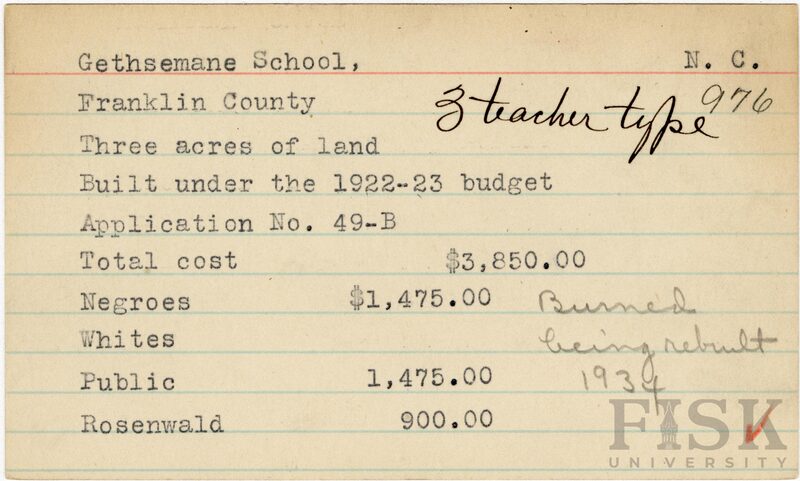 Gethsemane School, N. C.
Franklin County 3 teacher type 976
Three acres of land
Built under the 1922-23 budget
Application No. 49-B
Total cost $3,850.00
Negroes $1,475.00 Burned
Whites being rebuilt
Public 1,475.00 1934
Rosenwald 900.00
FISK
UNIVERSITY